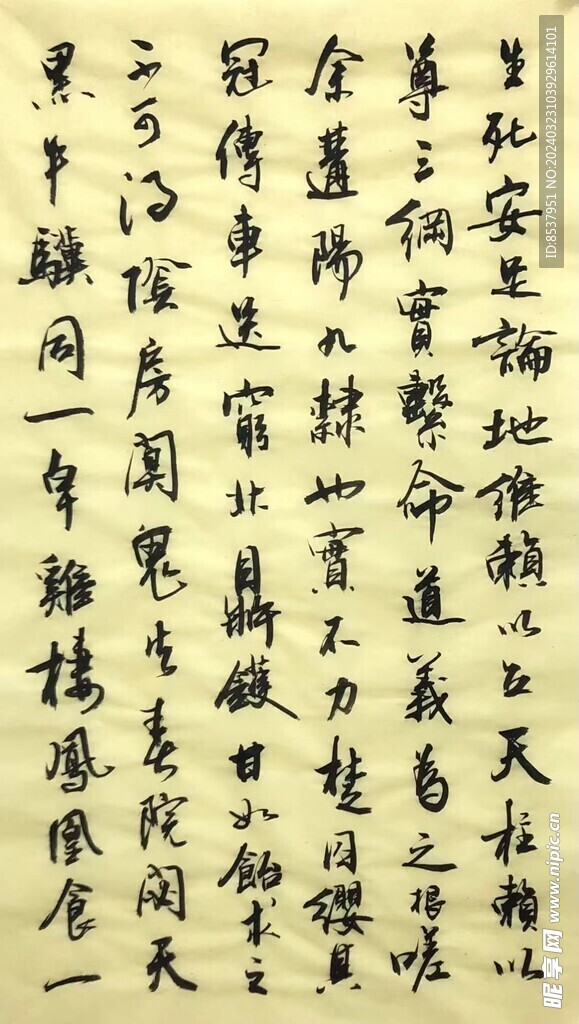 生死安足論地維賴以立天柱賴以
尊三綱實繫命道義為之根嗟
余遘陽九隸也實不力楚囚纓其
冠傳車送窮北鼎鑊甘如飴求之
不可得陰房闃鬼火春院閟天
黑牛驥同一皁雞棲鳳凰食一
ID:8537951 NO:20240323103929614101
昵享网 www.nipic.cn